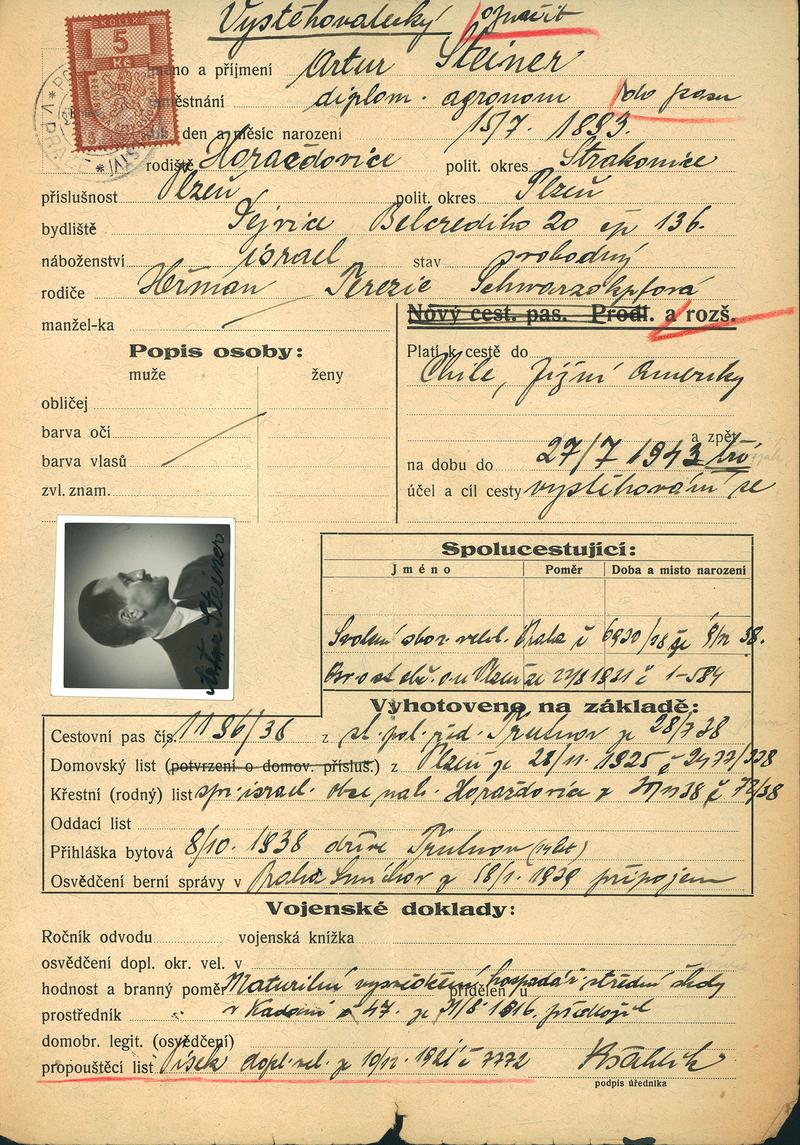 Vystěhovalecký opatřit
KOLEK
5
Kč
Jméno a příjmení Artur Steiner
zaměstnání diplom. agronom do pasu
den a měsíc narození 15/7. 1893.
rodiště Horaždovice polit. okres Strakonice
příslušnost Plzeň polit. okres Plzeň
bydliště Dejvice Belcrediho 20 čp 136.
náboženství israel stav svobodný
rodiče Heřman Terezie Schwarzkopfová
manžel-ka
Nový cest. pas. Prodl. a rozš.
Popis osoby:
muže ženy
obličej
barva očí
barva vlasů
zvl. znam.
Platí k cestě do
Chile, Jižní Ameriky
a zpět
na dobu do 27/7 1943
účel a cíl cesty vystěhování se
Artur Steiner
Spolucestující:
jméno Poměr Doba a místo narození
Svolení sbor. velit. Praha č 6930/38 ze 9/12 38.
Plzeň ze 1931 č 1-584
Vyhotoveno na základě:
Cestovní pas čís. 1196/38 z st. pol. úřed. Trutnov ze 28/7 38
Domovský list (potvrzení o domov. přísluš.) z Plzeň ze 28/11. 1925 č 2477/338
Křestní (rodný) list israel. obce Horažďovice z 38 č 72/38
Oddací list
Přihláška bytová 8/10. 1938 dříve Trutnov
Osvědčení berní správy v Praha Smíchov z 18/1. 1939 připojem
Vojenské doklady:
Ročník odvodu vojenská knížka
osvědčení dopl. okr. vel. v
hodnost a branný poměr Maturitní vysvědčení hospodář. střední školy
přidělen u
prostředník v Kadani č 47. ze 31/8 1916. předložil
domobr. legit. (osvědčení)
propouštěcí list Písek dopl. vel. ze 19/12. 1921 č 7772
podpis úředníka